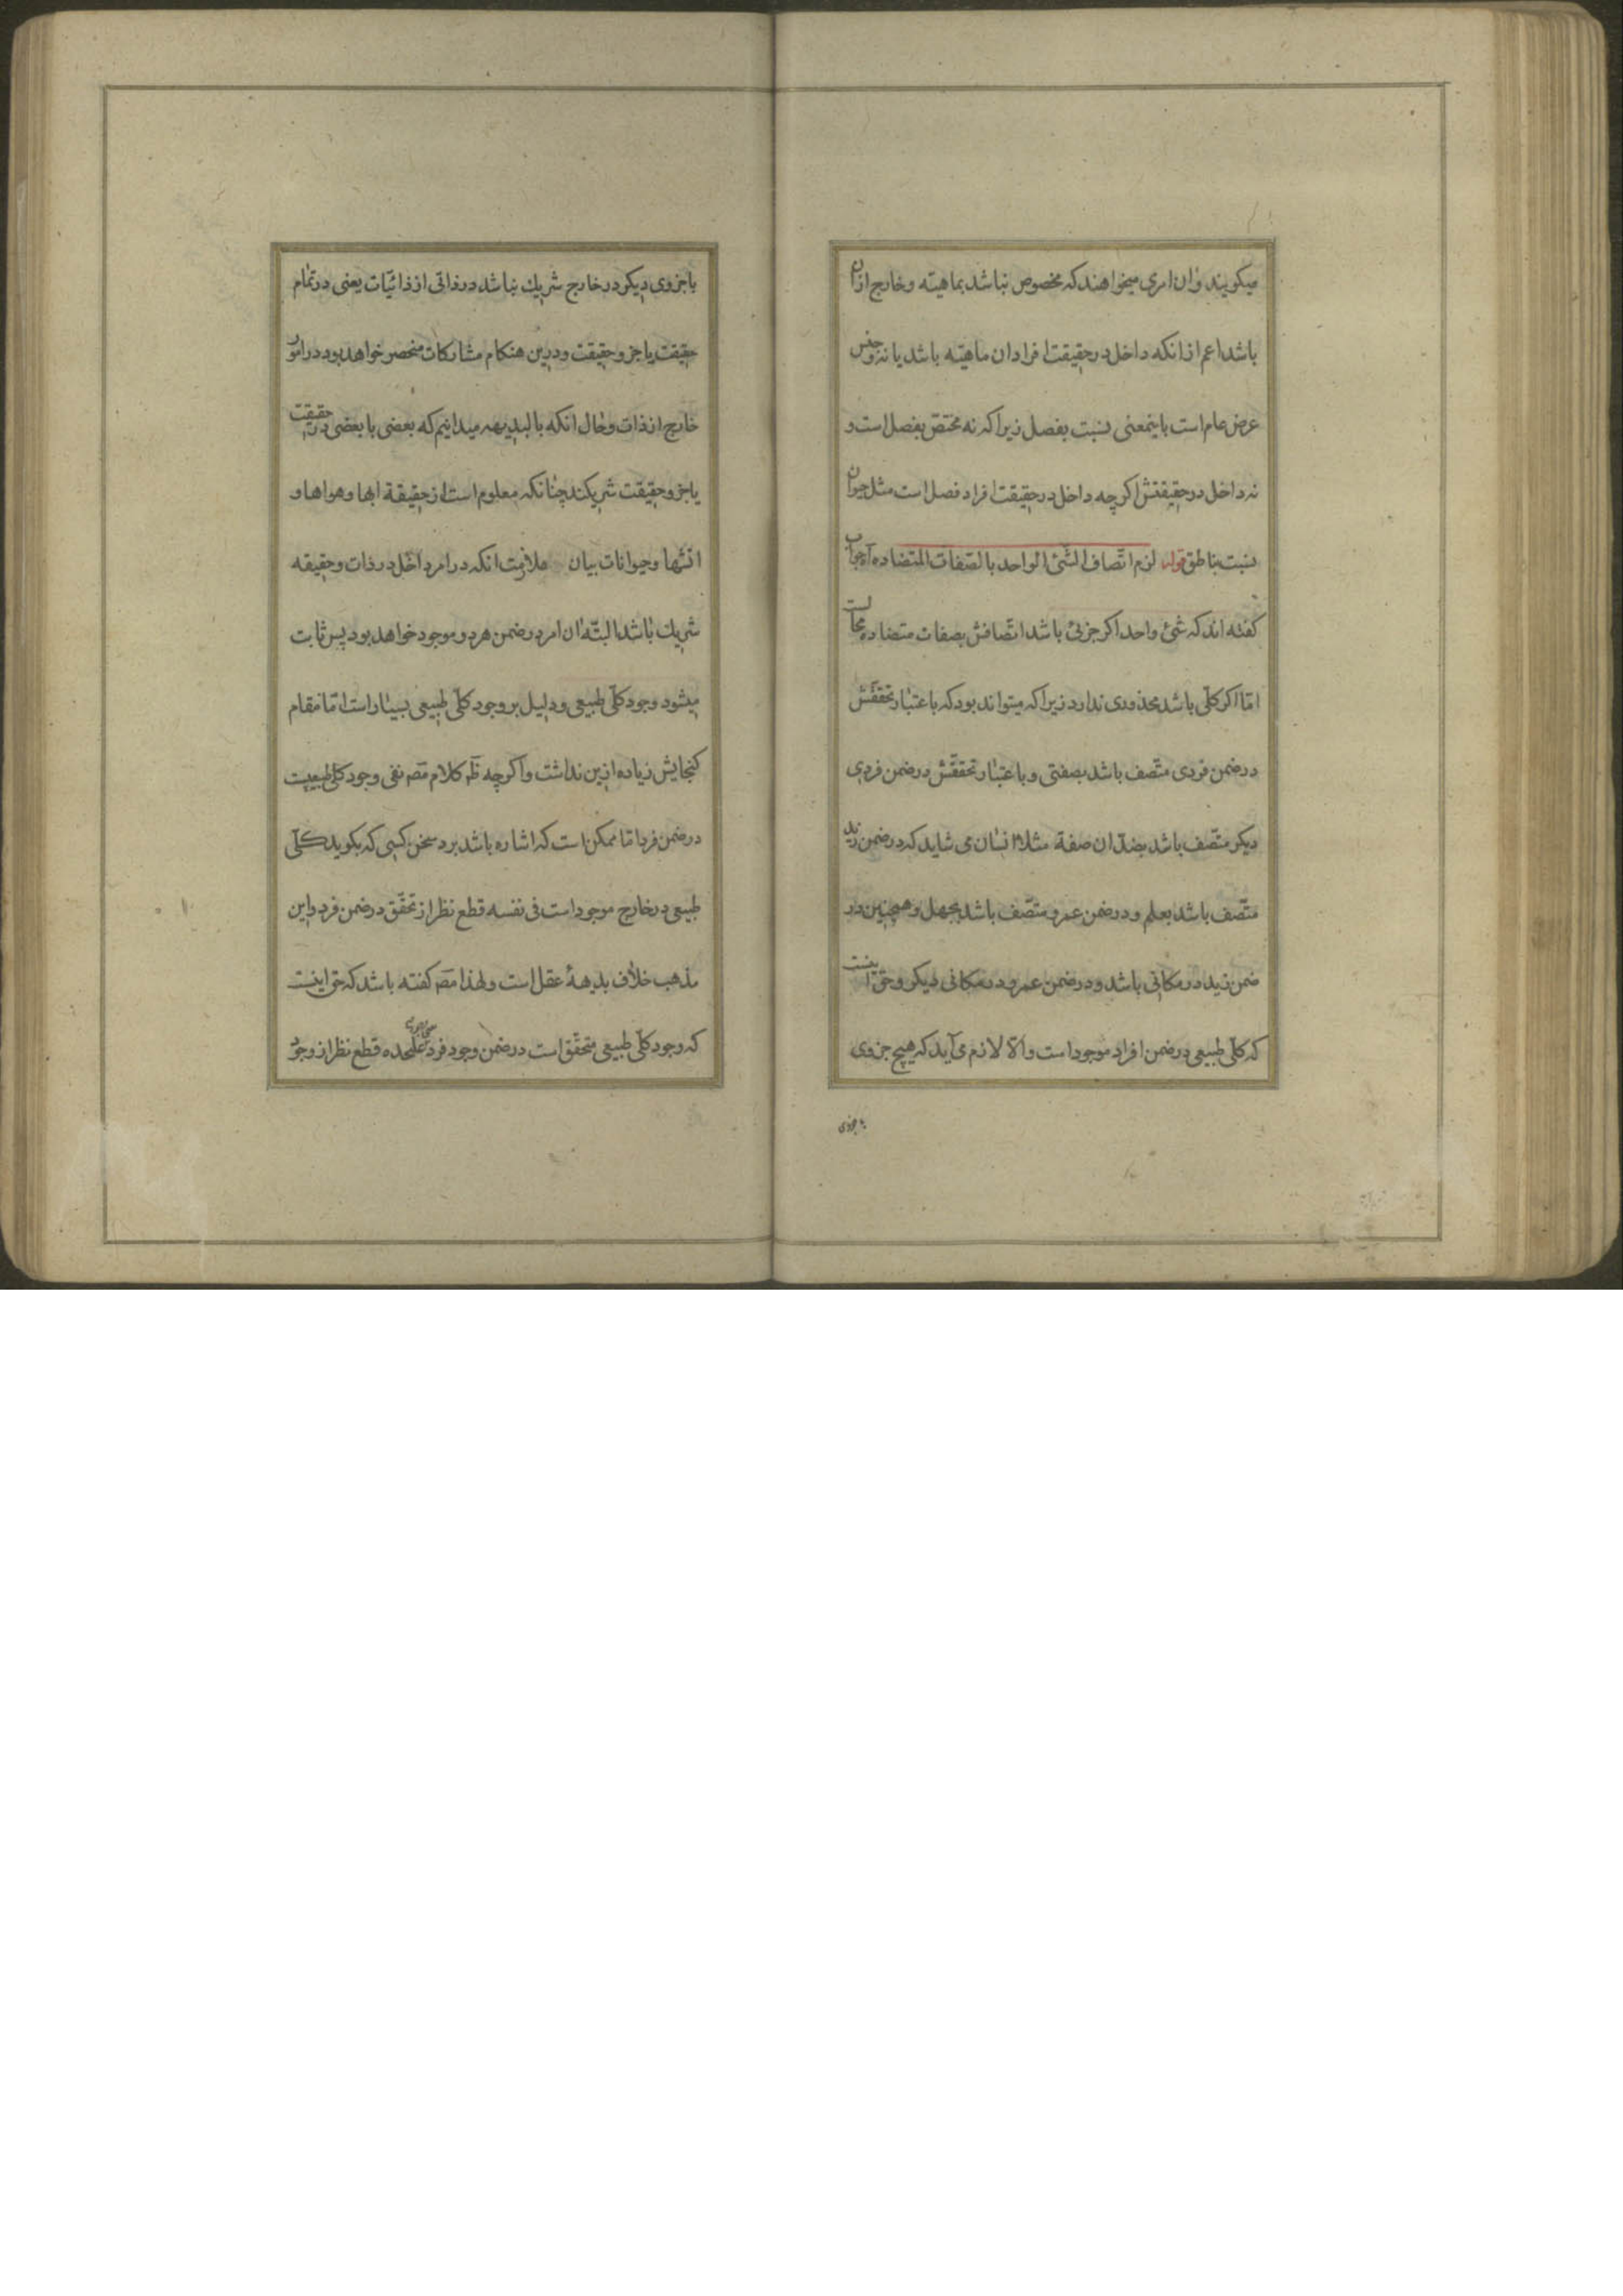 میکویند و ان امری میخواهند که مخصوص نباشد بماهیته و خارج ازان
باشد اعم ازانکه داخل در حقیقت افراد ان ماهیته باشد یا نه و جنس
عرض عام است باینمعنی نسبت بفصل زیرا که نه مختص بفصل است و
نه داخل در حقیقتش اکر چه داخل در حقیقت افراد فصل است مثل حیوان
نسبت بناطق قوله لزم اتصاف الشئ الواحد بالصفات المتضاده آه جواب
کفته اند که شئ واحد اکر جزئی باشد اتصافش بصفات متضاده محالست
امّا اکر کلّی باشد محذوری ندارد زیرا که میتواند بود که باعتبار تحققش
در ضمن فردی متّصف باشد بصفتی و باعتبار تحققش در ضمن فردی
دیکر متّصف باشد بضدّ ان صفة مثلا انسان می شاید که در ضمن زید
متّصف باشد بعلم و در ضمن عمرو متّصف باشد بجهل و همچنین در
ضمن زید در مکانی باشد و در ضمن عمرو در مکانی دیکر و حق اینست
که کلّی طبیعی در ضمن افراد موجود است و الّا لازم می آید که هیچ جزوی
با جزوی
با جزوی دیکر در خارج شریك نباشد در ذاتی از ذاتیّات یعنی در تمام
حقیقت یا جزو حقیقت و درین هنکام مشارکات منحصر خواهد بود در امور
خارج از ذات و حال انکه بالبدیهه میدانیم که بعضی با بعضی در حقیقت
یا جزو حقیقت شریکند چنانکه معلوم است از حقیقة ابها و هواها و
اتشها و حیوانات بیان ملازمت انکه در امر داخل در ذات و حقیقه
شریك باشد البتّه ان امر در ضمن هر دو موجود خواهد بود پس ثابت
میشود وجود کلّی طبیعی و دلیل بر وجود کلّی طبیعی بسیار است امّا مقام
کنجایش زیاده ازین نداشت و اکرچه ظه کلام مصه نفی وجود کلی طبیعیست
در ضمن فرد امّا ممکن است که اشاره باشد برد سخن کسی که بکوید کلّی
طبیعی در خارج موجود است فی نفسه قطع نظر از تحقّق در ضمن فرد و این
مذهب خلاف بدیههٔ عقل است و لهذا مصه کفته باشد که حق اینست
که وجود کلّی طبیعی متحقّق است در ضمن وجود فرد علیحده قطع نظر از وجود